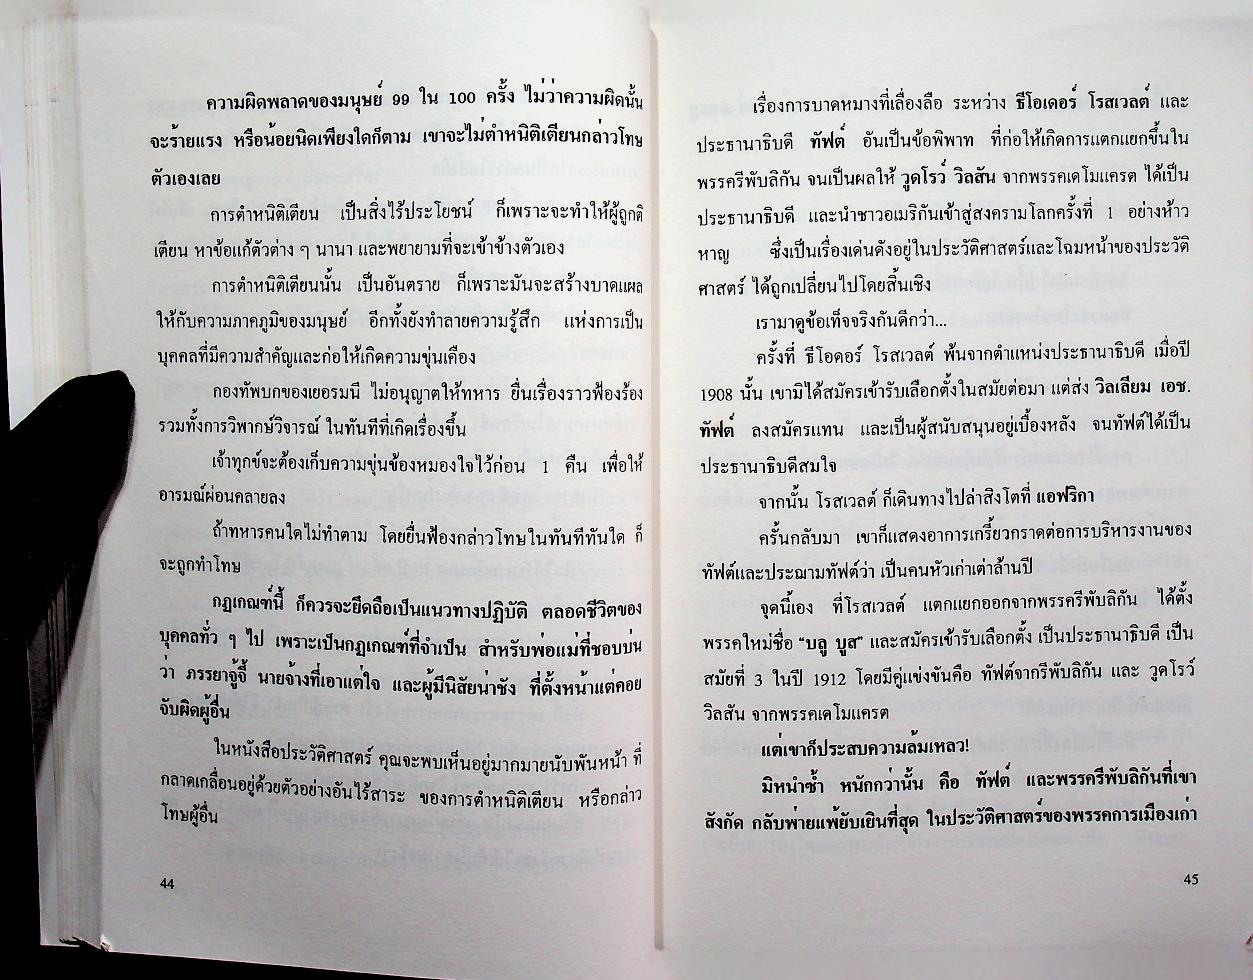 ความผิดพลาดของมนุษย์ 99 ใน 100 ครั้ง ไม่ว่าความผิดนั้น
จะร้ายแรง หรือน้อยนิดเพียงใดก็ตาม เขาจะไม่ตำหนิติเตียนกล่าวโทษ
ตัวเองเลย
การตำหนิติเตียน เป็นสิ่งไร้ประโยชน์ ก็เพราะจะทำให้ผู้ถูกติ
เตียน หาข้อแก้ตัวต่าง ๆ นานา และพยายามที่จะเข้าข้างตัวเอง
การตำหนิติเตียนนั้น เป็นอันตราย ก็เพราะมันจะสร้างบาดแผล
ให้กับความภาคภูมิของมนุษย์ อีกทั้งยังทำลายความรู้สึก แห่งการเป็น
บุคคลที่มีความสำคัญและก่อให้เกิดความขุ่นเคือง
กองทัพบกของเยอรมนี ไม่อนุญาตให้ทหาร ยื่นเรื่องราวฟ้องร้อง
รวมทั้งการวิพากษ์วิจารณ์ ในทันทีที่เกิดเรื่องขึ้น
เจ้าทุกข์จะต้องเก็บความขุ่นข้องหมองใจไว้ก่อน 1 คืน เพื่อให้
อารมณ์ผ่อนคลายลง
ถ้าทหารคนใดไม่ทำตาม โดยยื่นฟ้องกล่าวโทษในทันทีทันใด ก็
จะถูกทำโทษ
กฎเกณฑ์นี้ ก็ควรจะยึดถือเป็นแนวทางปฏิบัติ ตลอดชีวิตของ
บุคคลทั่ว ๆ ไป เพราะเป็นกฎเกณฑ์ที่จำเป็น สำหรับพ่อแม่ที่ชอบบ่น
ว่า ภรรยาจู้จี้ นายจ้างที่เอาแต่ใจ และผู้มีนิสัยน่าชัง ที่ตั้งหน้าแต่คอย
จับผิดผู้อื่น
ในหนังสือประวัติศาสตร์ คุณจะพบเห็นอยู่มากมายนับพันหน้า ที่
กลาดเกลื่อนอยู่ด้วยตัวอย่างอันไร้สาระ ของการตำหนิติเตียน หรือกล่าว
โทษผู้อื่น
44
เรื่องการบาดหมางที่เลื่องลือ ระหว่าง ธีโอเดอร์ โรสเวลต์ และ
ประธานาธิบดี ทัฟต์ อันเป็นข้อพิพาท ที่ก่อให้เกิดการแตกแยกขึ้นใน
พรรครีพับลิกัน จนเป็นผลให้ วูดโรว์ วิลสัน จากพรรคเดโมแครต ได้เป็น
ประธานาธิบดี และนำชาวอเมริกันเข้าสู่สงครามโลกครั้งที่ 1 อย่างห้าว
หาญ ซึ่งเป็นเรื่องเด่นดังอยู่ในประวัติศาสตร์และโฉมหน้าของประวัติ
ศาสตร์ ได้ถูกเปลี่ยนไปโดยสิ้นเชิง
เรามาดูข้อเท็จจริงกันดีกว่า...
ครั้งที่ ธีโอดอร์ โรสเวลต์ พ้นจากตำแหน่งประธานาธิบดี เมื่อปี
1908 นั้น เขามิได้สมัครเข้ารับเลือกตั้งในสมัยต่อมา แต่ส่ง วิลเลียม เอช.
ทัฟต์ ลงสมัครแทน และเป็นผู้สนับสนุนอยู่เบื้องหลัง จนทัฟต์ได้เป็น
ประธานาธิบดีสมใจ
จากนั้น โรสเวลต์ ก็เดินทางไปล่าสิงโตที่ แอฟริกา
ครั้นกลับมา เขาก็แสดงอาการเกรี้ยวกราดต่อการบริหารงานของ
ทัฟต์และประฌามทัฟต์ว่า เป็นคนหัวเก่าเต่าล้านปี
จุดนี้เอง ที่โรสเวลต์ แตกแยกออกจากพรรครีพับลิกัน ได้ตั้ง
พรรคใหม่ชื่อ “บลู บูส” และสมัครเข้ารับเลือกตั้ง เป็นประธานาธิบดี เป็น
สมัยที่ 3 ในปี 1912 โดยมีคู่แข่งขันคือ ทัฟต์จากรีพับลิกัน และ วูดโรว์
วิลสัน จากพรรคเดโมแครต
แต่เขาก็ประสบความล้มเหลว!
มิหนำซ้ำ หนักกว่านั้น คือ ทัฟต์ และพรรครีพับลิกันที่เขา
สังกัด กลับพ่ายแพ้ยับเยินที่สุด ในประวัติศาสตร์ของพรรคการเมืองเก่า
45